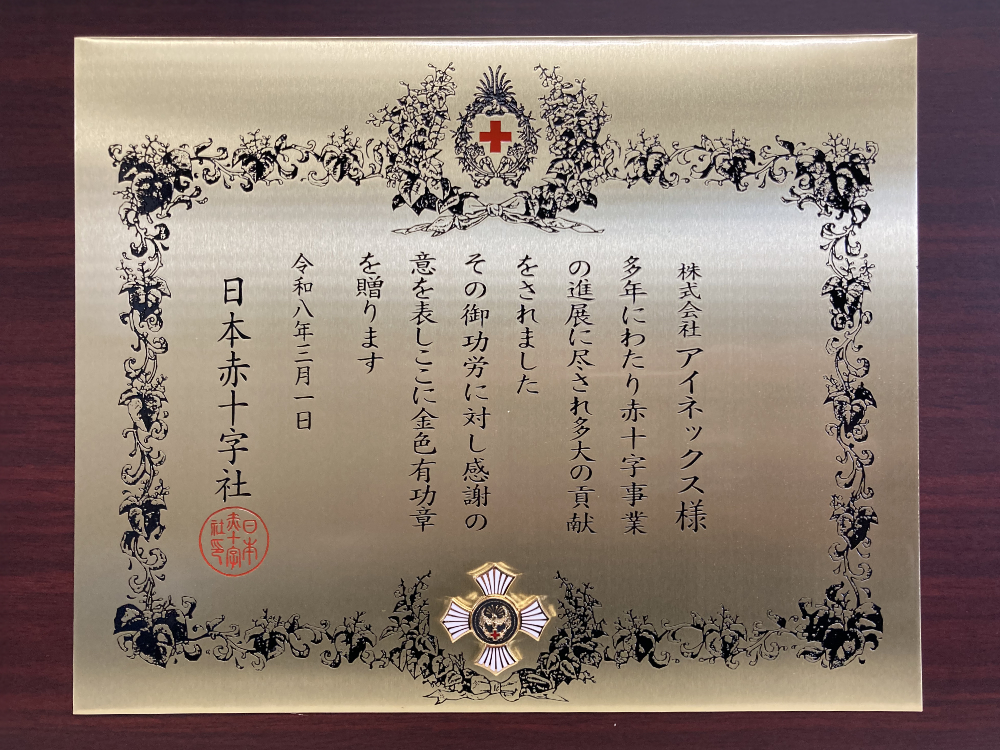 株式会社 アイネックス様
多年にわたり赤十字事業
の進展に尽され多大の貢献
をされました
その御功労に対し感謝の
意を表しここに金色有功章
を贈ります
令和八年三月一日
日本赤十字社
日本
赤十字
社印